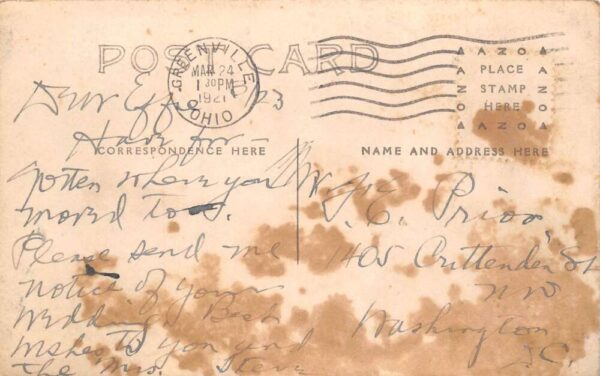 POST CARD
GREENVILLE
MAR 24
1 30 PM
1921
OHIO
AZO
PLACE
STAMP
HERE
AZO
CORRESPONDENCE HERE
NAME AND ADDRESS HERE
Dear 23
Have for-
gotten where you
moved to.
Please send me
notice of your
wedding. Best
wishes to you and
the Mrs. Steve
J. C. Prior
1405 Crittenden St
N W
Washington
D.C.